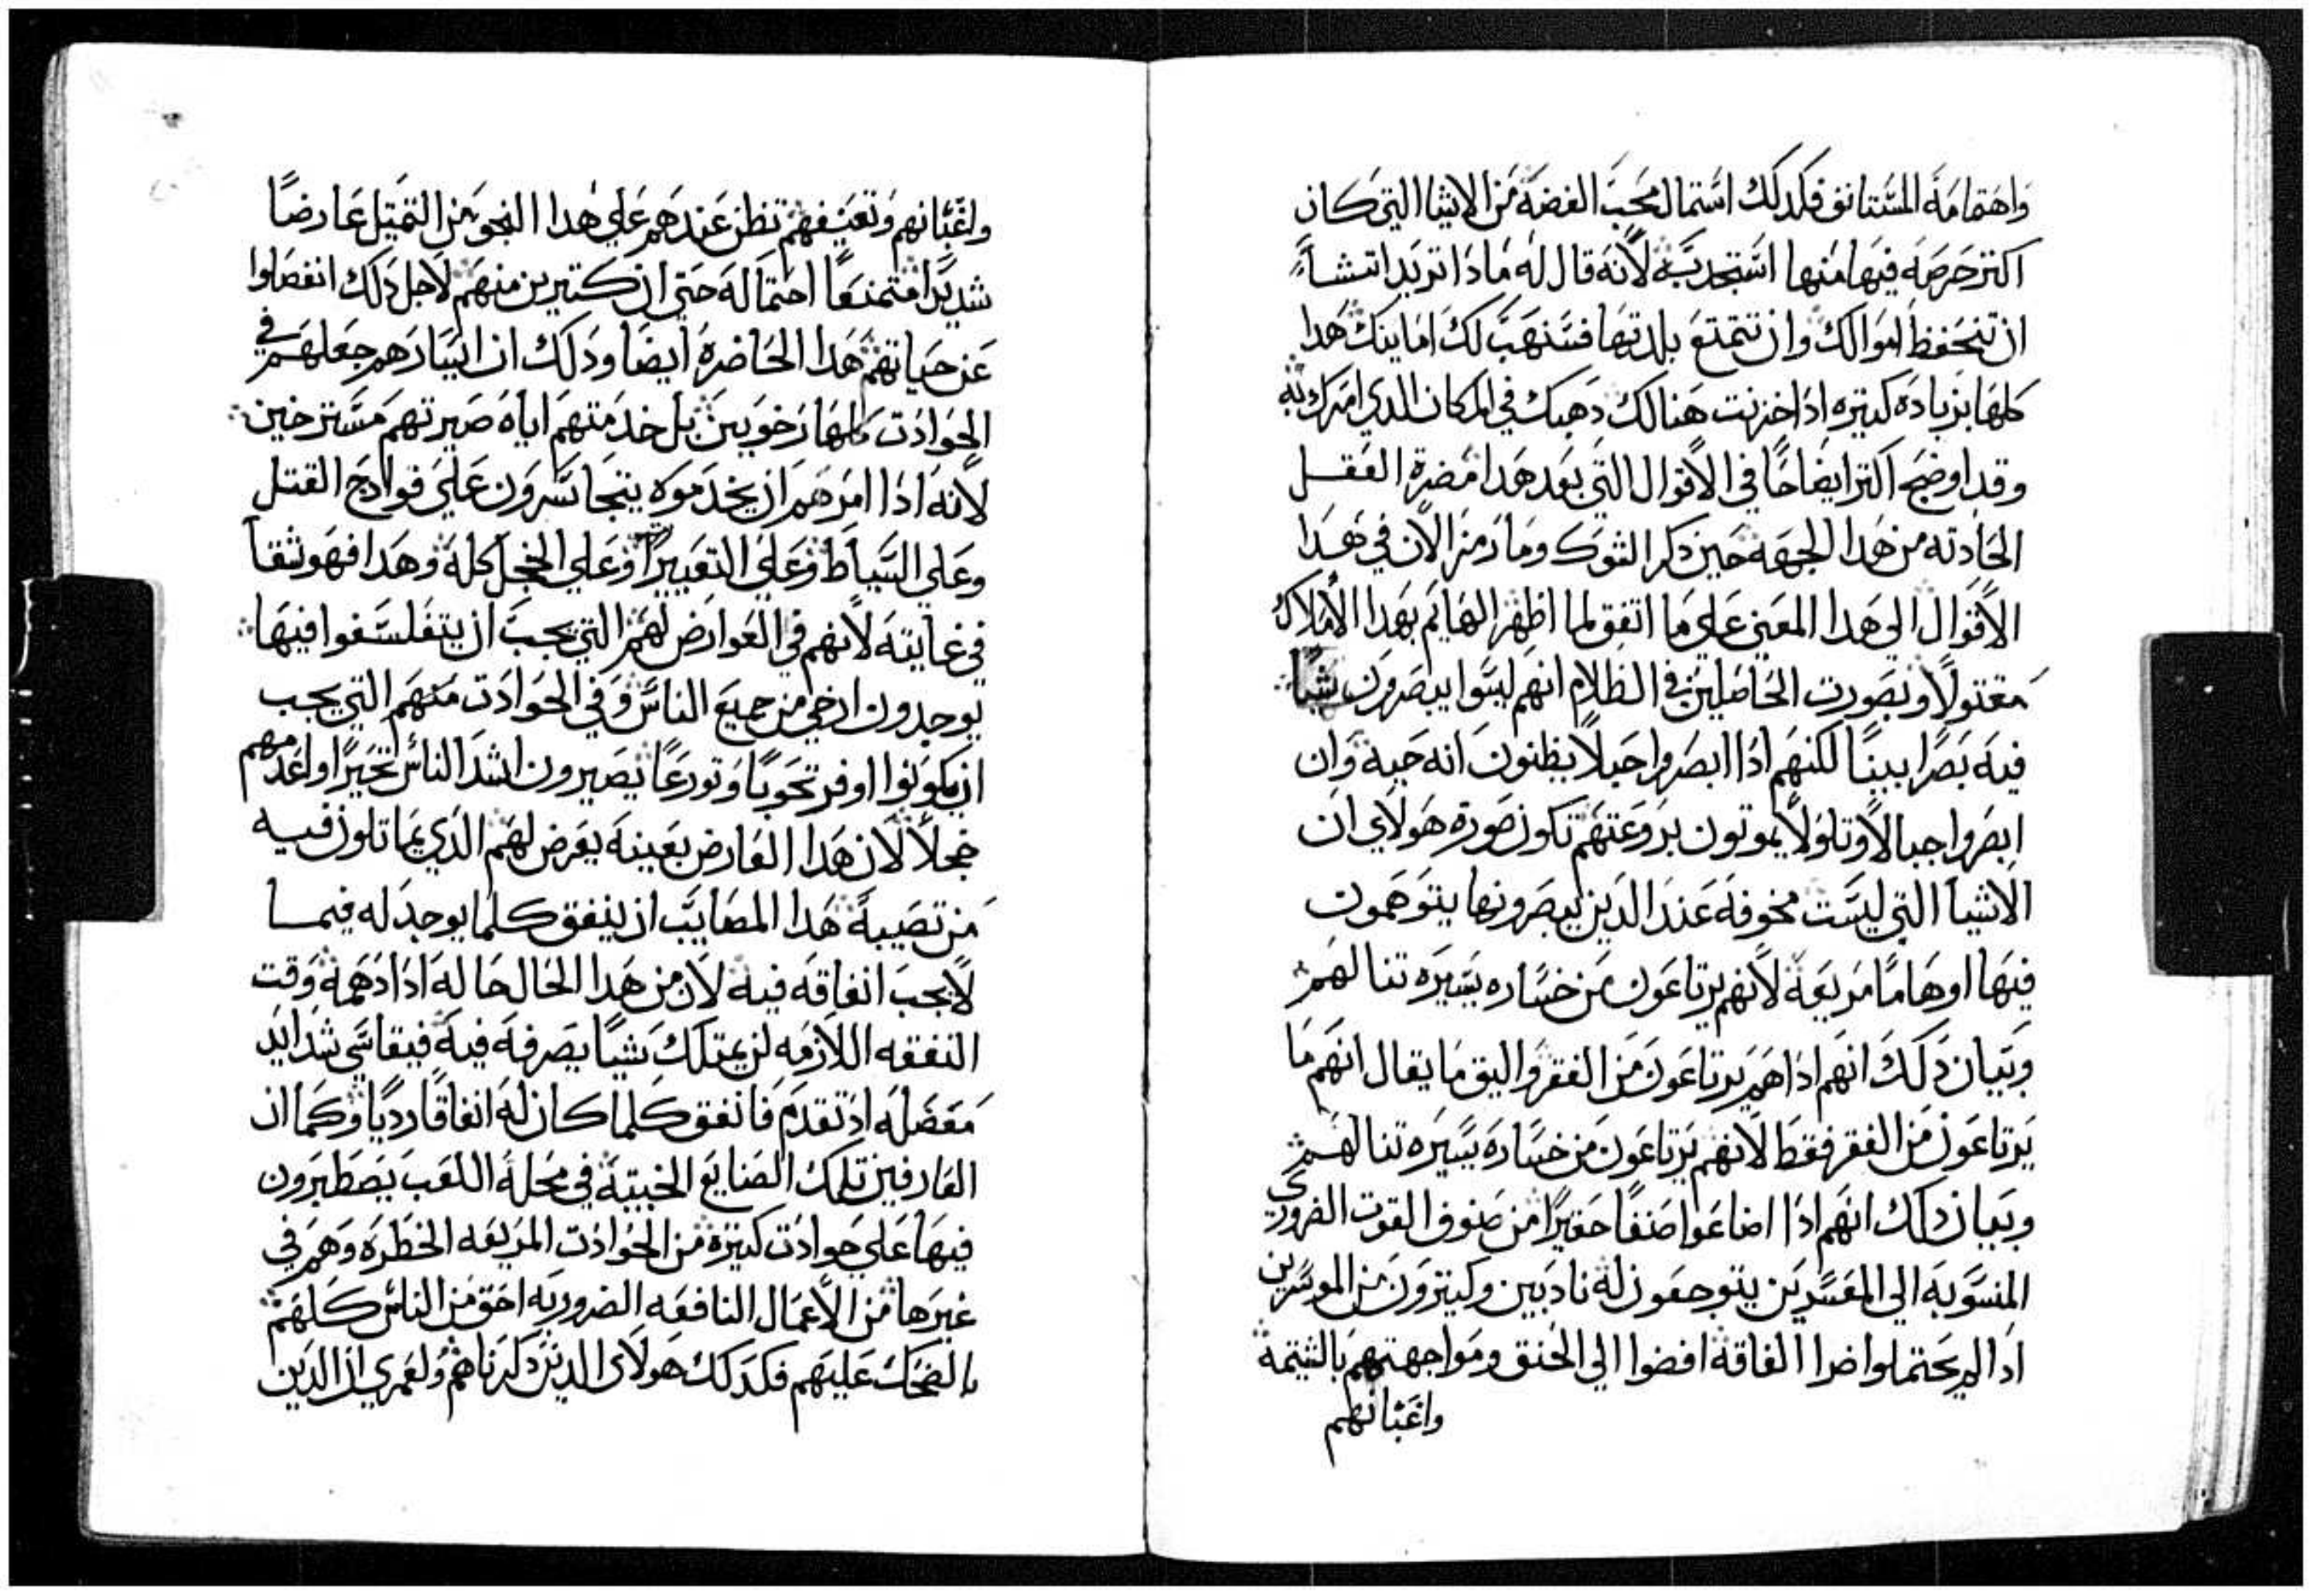 واهتمامه المستانق فكدلك استمال محب الفضة من الاشيا التي كان
اكتر حرصه فيها منها استجدبه لانه قال له مادا تريد اتشا
ان تنحفظ اموالك وان تتمتع بلدتها فسنهب لك اماينك هدا
كلها بزيادة كتيره ادا خزنت هنالك دهبك في المكان الدي امرك به
وقد اوضح اكتر ايضاحا في الاقوال التي بعد هدا مضرة العقل
الحادته من هدا الجهة حين دكر الشوك وما رمز الان في هدا
الاقوال الي هدا المعني علي ما اتفق لما اظهر الهايم بهدا الاملاك
مقتولا وبصورت الحاصلين في الظلام انهم ليسوا يبصرون شيا
فيه بصرا بينا لكنهم ادا ابصروا حبلا يظنون انه حية وان
ابصروا جبالا وتلولا يموتون بروعتهم تكون صورة هولاي ان
الاشيا التي ليست مخوفه عند الدين يبصرونها يتوهمون
فيها اوهاما مريعة لانهم يرتاعون من خساره يسيره تنالهم
وبيان دلك انهم ادا هم يرتاعون من الفقر واليق ما يقال انهم ما
يرتاعون من الفقر فقط لانهم يرتاعون من خساره يسيره تنالهم
وبيان دلك انهم ادا اضاعوا صنفا حقيرا من صنوف القوت الضروري
المنسوبه الي المفسدين يتوجعون له نادبين وكتيرون من الموسرين
ادا لم يحتملوا ضرا الفاقة افضوا الي الخنق ومواجهتهم بالشتيمة
واغتبانهم
واغتبانهم وتعنيفهم تظن عندهم علي هدا النحو من التمتيل عارضا
شديدا متمنعا احتماله حتي ان كتيرين منهم لاجل دلك انفصلوا
عن حياتهم هدا الحاضرة ايضا ودلك ان ايسارهم جعلهم في
الحوادت كلها رخويين بل خدمتهم اياه صيرتهم مسترخين
لانه ادا امرهم ان يخدموه يتجاسرون علي فوادح القتل
وعلي السياط وعلي التعيير وعلي الخجل كله وهدا فهو شقا
في غايته لانهم في العوارض لهم التي يجب ان يتفلسفوا فيها
يوجدون ارخي من جميع الناس وفي الحوادت منهم التي يجب
ان يكونوا اوفر تحوبا وتورعا يصيرون اشد الناس تخيرا واعدمهم
خجلا لان هدا العارض بعينه يعرض لهم الدي يماتلون فيه
من تصيبة هدا المصايب ان ينفق كلما يوجد له فيما
لا يجب انفاقه فيه لان من هدا الحال حاله ادا دهمه وقت
النفقه اللازمه لن يمتلك شيا يصرفه فيه فيقاسي شدايد
معضله اد تقدم فانفق كلما كان له انفاقا رديا وكما ان
العارفين تلك الصنايع الخبيتة في محلة اللعب يصطبرون
فيها علي حوادت كتيرة من الحوادت المريعه الخطره وهم في
غيرها من الاعمال النافعه الضروريه احق من الناس كلهم
بالضحك عليهم فكدلك هولاي الدين دكرناهم ولعمري ان الدين